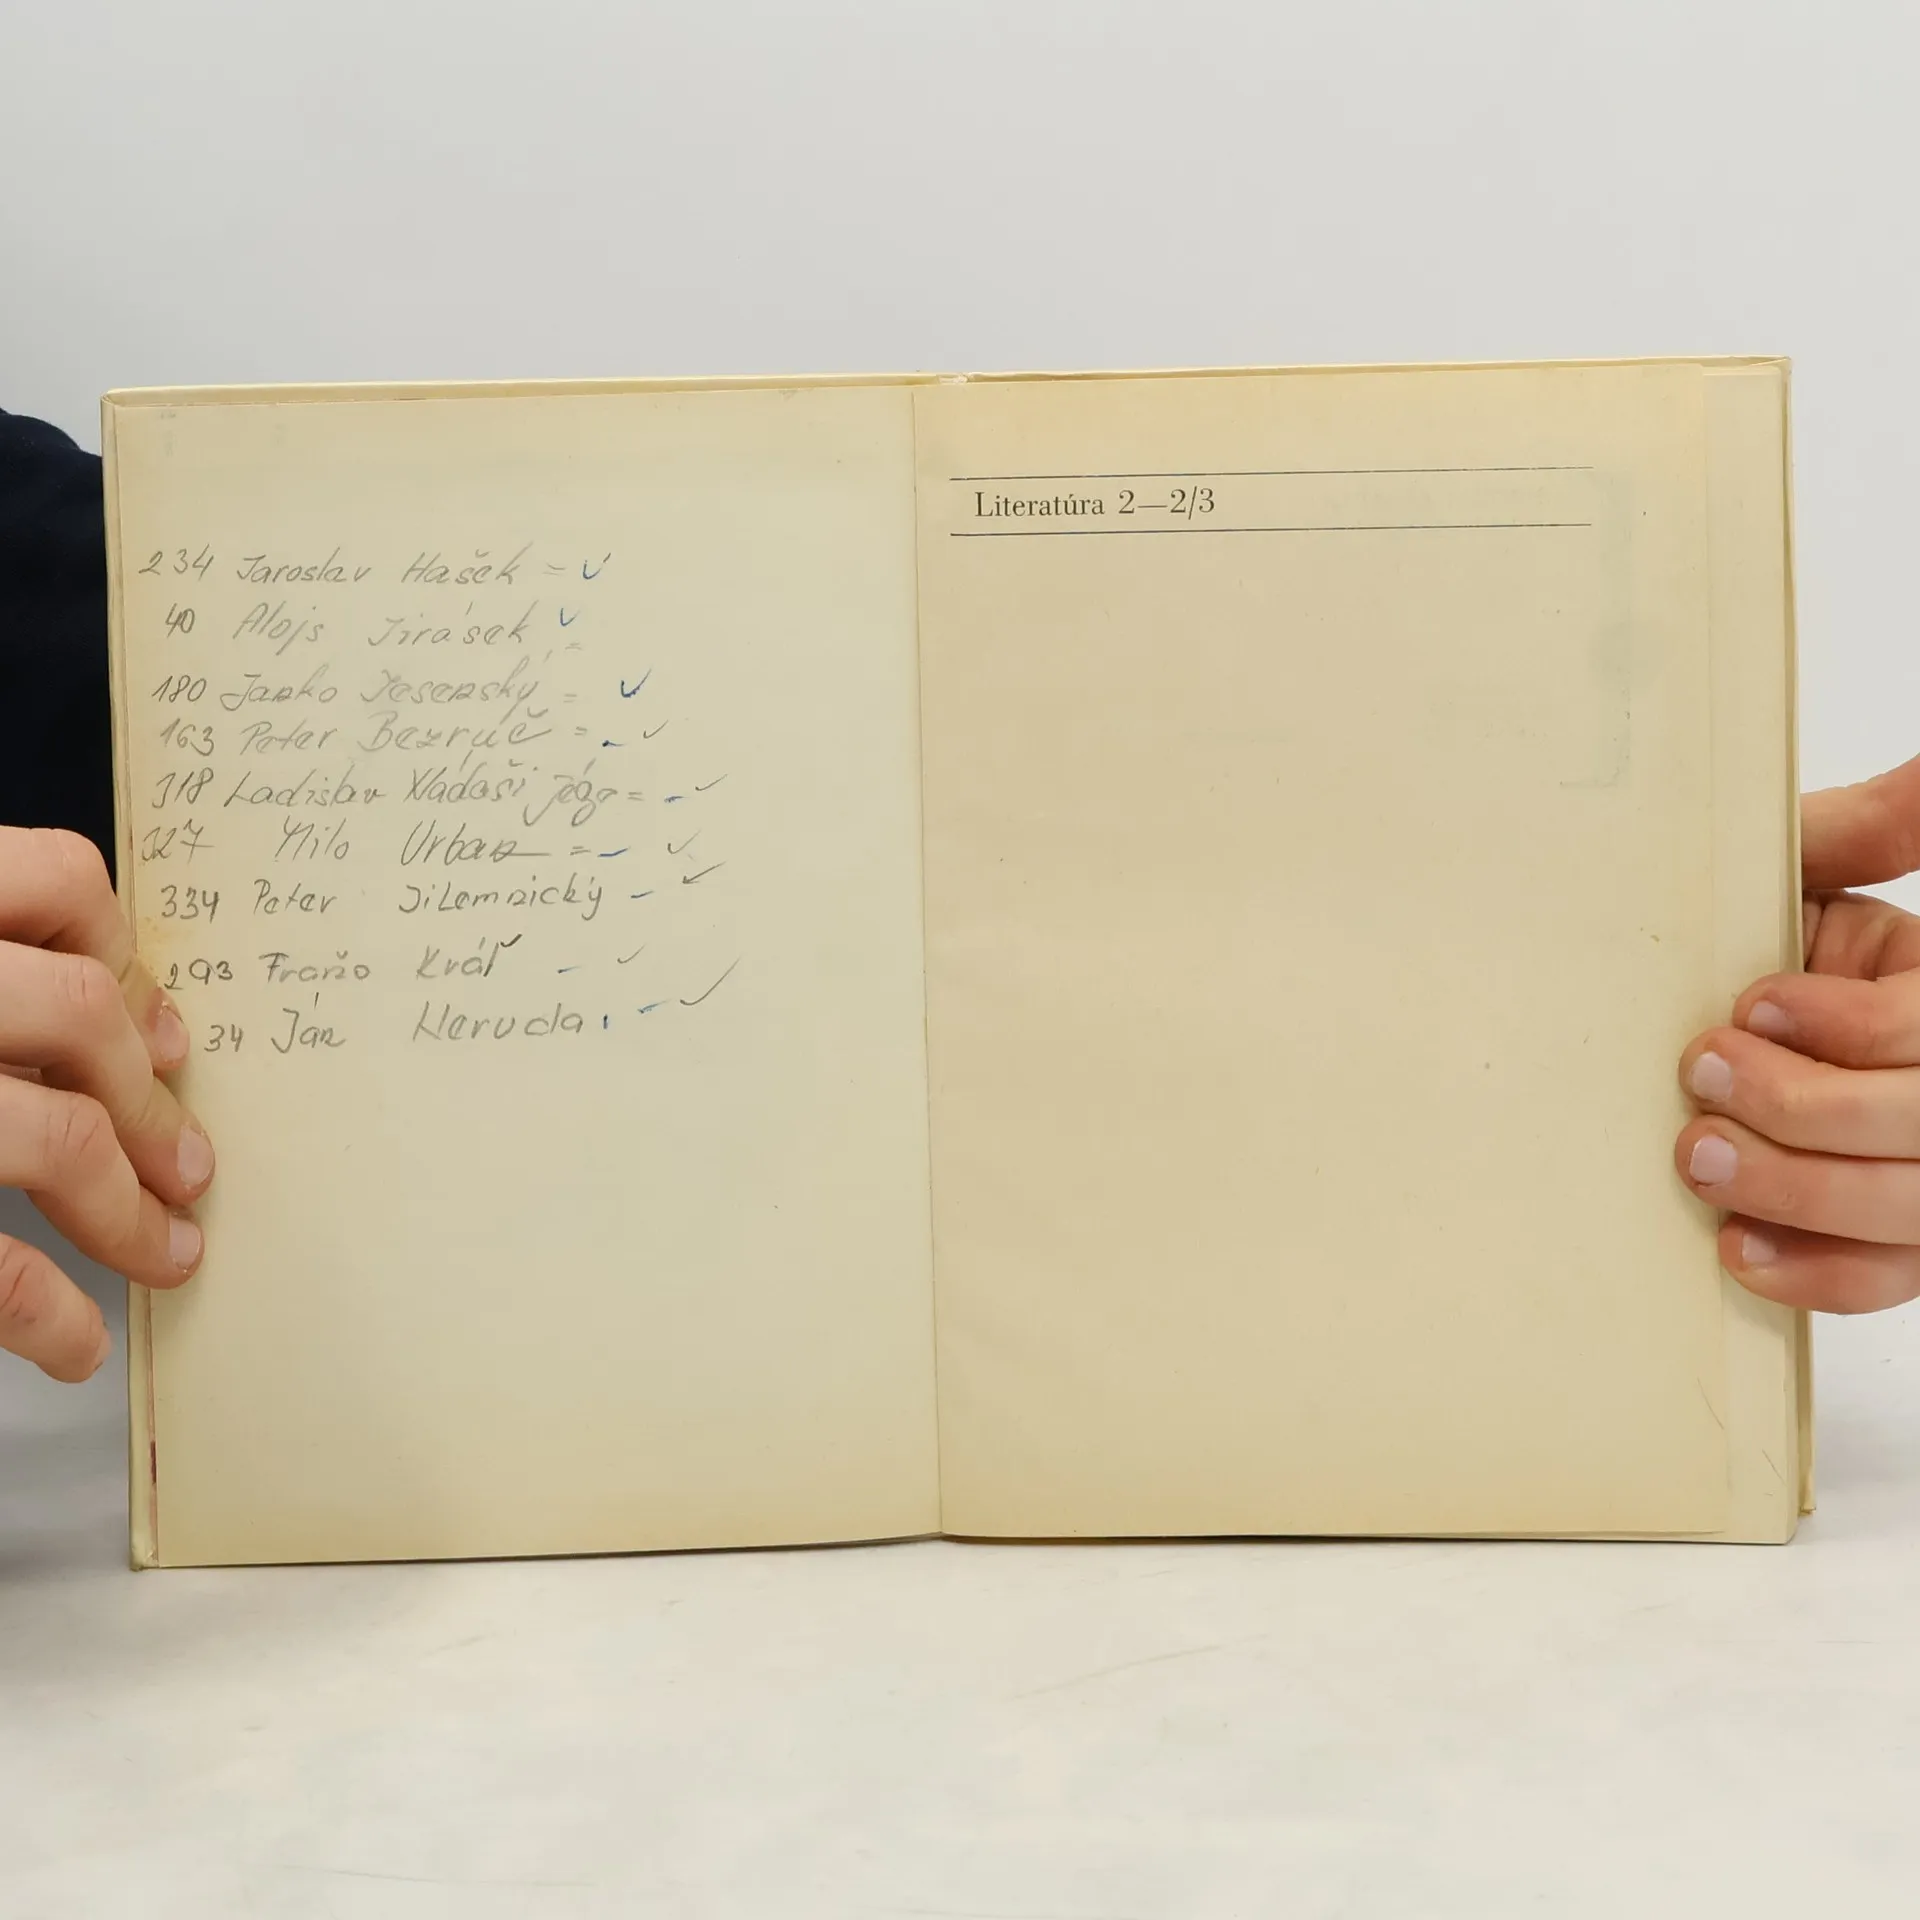 234 Jaroslav Hašek = ✓
40 Alojs Jirásek ✓ =
180 Janko Jesenský = ✓
163 Peter Bezruč = - ✓
318 Ladislav Nádaši Jége = - ✓
327 Milo Urban = - ✓
334 Peter Jilemnický - ✓
293 Fraňo Kráľ - ✓
34 Ján Neruda . - ✓
Literatúra 2—2/3